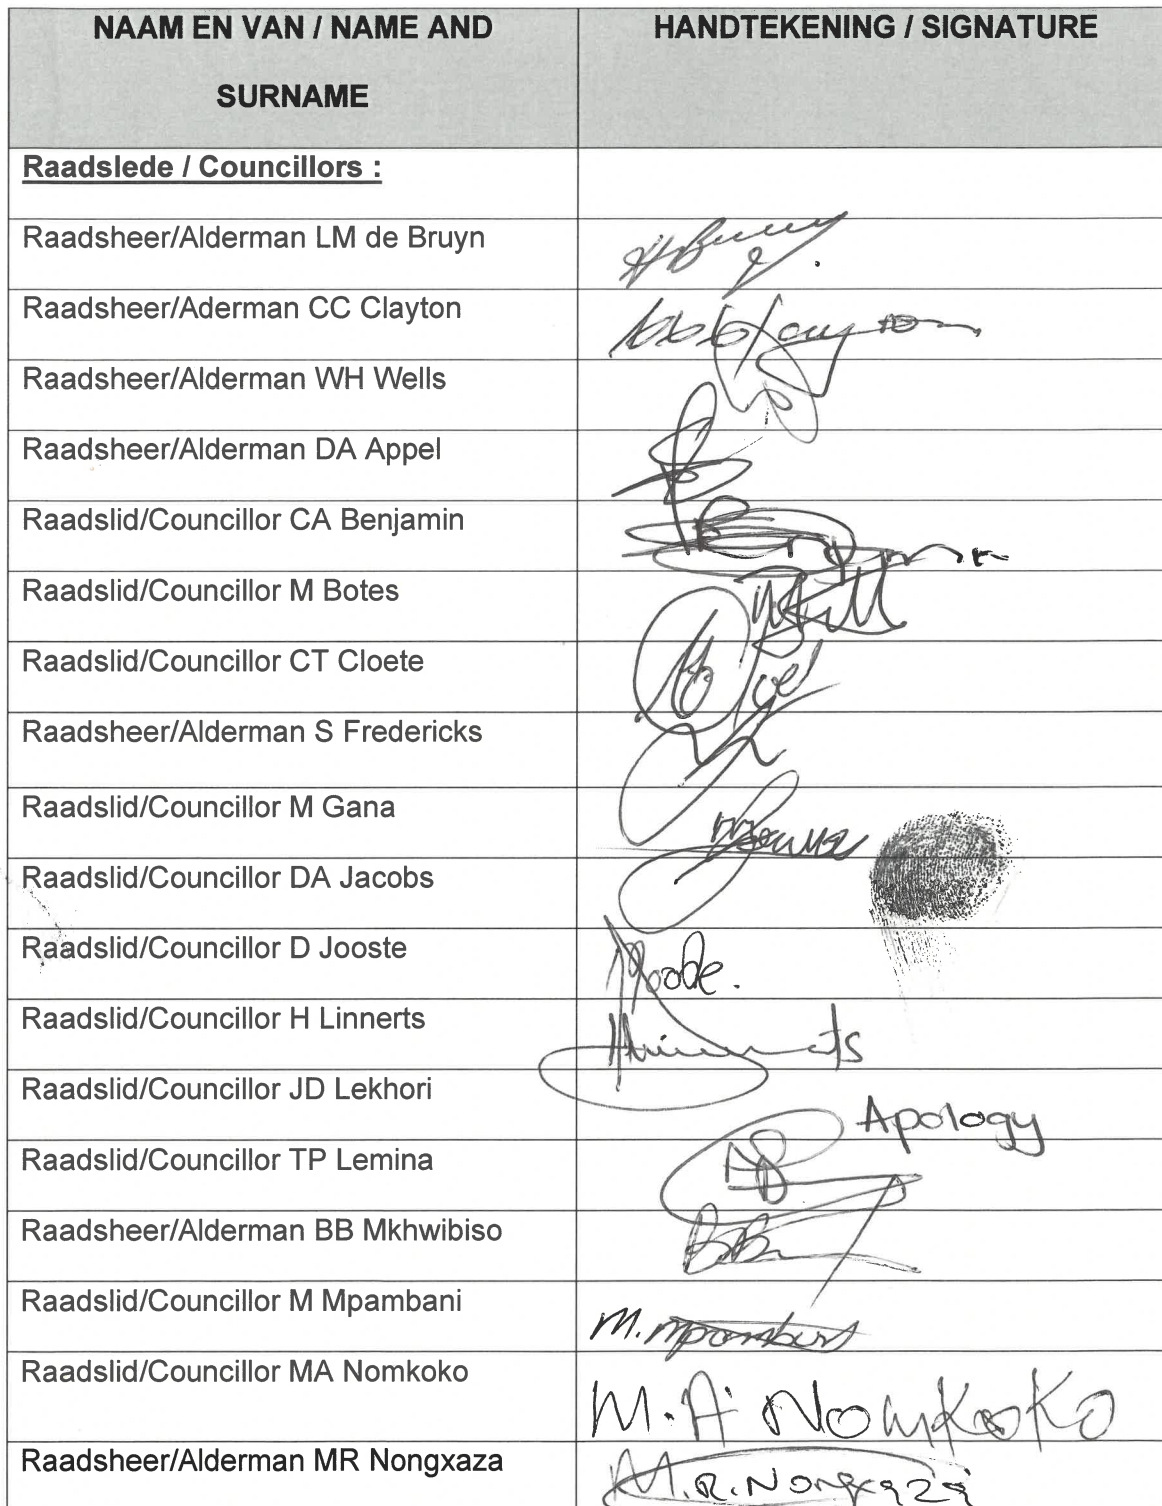 NAAM EN VAN / NAME AND
SURNAME
HANDTEKENING / SIGNATURE
Raadslede / Councillors :
Raadsheer/Alderman LM de Bruyn
Raadsheer/Aderman CC Clayton
Raadsheer/Alderman WH Wells
Raadsheer/Alderman DA Appel
Raadslid/Councillor CA Benjamin
Raadslid/Councillor M Botes
Raadslid/Councillor CT Cloete
Raadsheer/Alderman S Fredericks
Raadslid/Councillor M Gana
Raadslid/Councillor DA Jacobs
Raadslid/Councillor D Jooste
Raadslid/Councillor H Linnerts
Raadslid/Councillor JD Lekhori
Apology
Raadslid/Councillor TP Lemina
Raadsheer/Alderman BB Mkhwibiso
Raadslid/Councillor M Mpambani
Raadslid/Councillor MA Nomkoko
M.A Nomkoko
Raadsheer/Alderman MR Nongxaza
M.R.Nongxaza